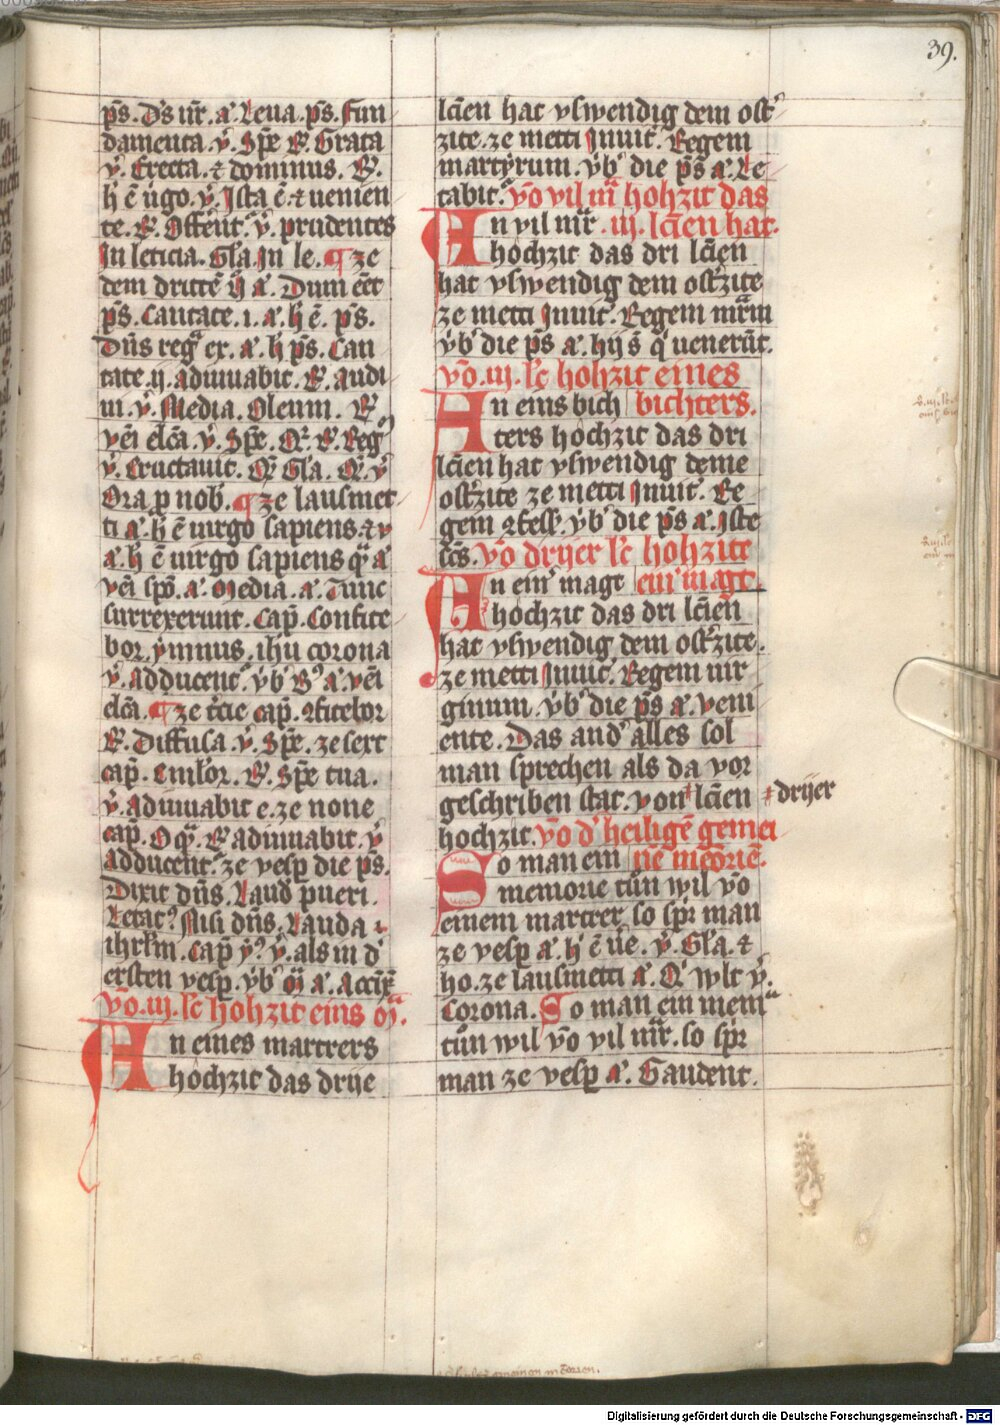 39.
ps̄. Ds̄ nr̄. a᷎. Leua. ps̄. Fun
damenta. v̄. Spē. R̄. Grata
v̄. Erecta. ⁊ dominus. R̄.
h̄ ē ũgo. v̄. Ista ē. ⁊ uenien
te. R̄. Offent᷎. v̄. prudentes
In leticia. Gla᷎. In le. ¶ ze
dem drittē a᷎. Dum eēt
ps̄. Cantate. i. a᷎. h̄ ē. ps̄.
Dn̄s reg᷎ ex. a᷎. h ps̄. Can
tate. ij. adiuuabit. R̄. Audi
ui. v̄. Media. Oleum. R̄
vēi elc̄a. v̄. Spē. R̄. Reg᷎
v̄. Eructauit. Gla᷎.
Ora ꝑ nob᷎. ¶ ze lausmet
ti a᷎. h̄ ē uirgo sapiens. ⁊ v
a᷎. h̄ ē uirgo sapiens q̄ a᷎
vēi spō. a᷎. Media. a᷎. Tunc
surrexerunt. cap̄. Confite
bor. ymnus. ihū corona
v̄. adducent᷎. vb᷎ B᷎ a᷎. vēi
elc̄a. ¶ ze t᷎cie cap̄. ꝯfitebor
R̄. Diffusa. v̄. Spē. ze sext
cap̄. Eml᷎or. R̄. Spē tua.
v̄. Adiuuabit e. ze none
cap̄. O q᷎. R̄ adiuuabit. v̄
adducent᷎. ze vesꝑ die ps̄.
Dixit dn̄s. Laud᷎ pueri.
Letat᷎ Nisi dn̄s. Lauda
ihrl̄m. cap̄ y᷎ v̄. als in d᷎
ersten vesꝑ. vb᷎ a᷎. Accīe
vō. iij. lc̄ hohzit eins m᷎.
An eines martrers
hochzit das drije
lc̄ien hat vswendig dem ost᷎
zite. ze metti Inuit᷎. Regem
martyrum. vb᷎ die ps̄ a᷎. Le
tabit᷎. vō vil m᷎ hohzit das
An vil mr̄. iij. lc̄ien hat.
hochzit das dri lc̄ien
hat vswendig dem ost᷎zite
ze metti Inuit᷎. Regem mr̄m
vb᷎ die ps̄ a᷎. hij s̄ q᷎ uenerūt.
vō. iij. lc̄ hohzit eines
An eins bich bichters.
ters hochzit das dri
lc̄ien hat vswendig deme
ost᷎zite ze metti Inuit᷎. Re
gem ꝯfess᷎. vb᷎ die ps̄ a᷎. Iste
c̄s. vō drijer lc̄ hohzite
An ein᷎ magt ein᷎ magt.
hochzit das dri lc̄ien
hat vswendig dem ost᷎zite.
ze metti Inuit᷎. Regem uir
ginum. vb᷎ die ps̄ a᷎. veni
ente. Das and᷎ alles sol
man sprechen als da vor
geschriben stat. von lc̄ien drijer
hochzit. vō d᷎ heiligē gemei
So man ein nē meorie᷎.
memorie tůn wil vō
einem martrer, so spr᷎ man
ze vesꝑ a᷎. h̄ ē ūe. v̄. Gl᷎a. ⁊
ho. ze lausmetti a᷎. Q᷎ wlt v̄.
Corona. So man ein mem᷎
tůn wil vō vil mr̄. so spr᷎
man ze vesꝑ a᷎. Gaudent.
Digitalisierung gefördert durch die Deutsche Forschungsgemeinschaft - DFG